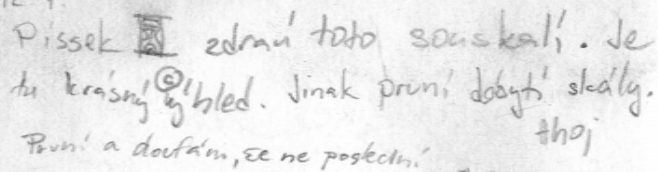 Pissek zdraví toto souskalí. Je
tu krásný výhled. Jinak první dobytí skály.
thoj
První a doufám, že ne poslední